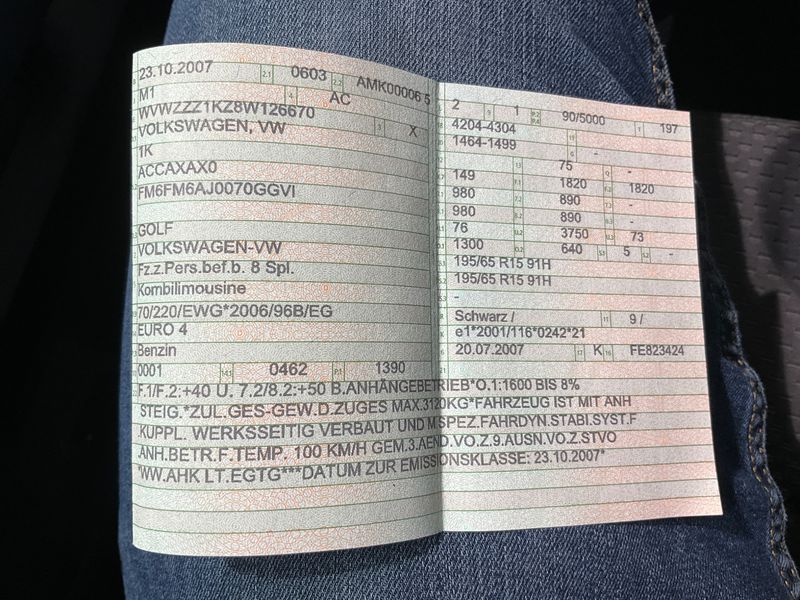 23.10.2007 2.1 0603 2.2 AMK00006 5
M1 4. AC
WVWZZZ1KZ8W126670
VOLKSWAGEN, VW 3 X
1K
ACCAXAX0
FM6FM6AJ0070GGVI
GOLF
VOLKSWAGEN-VW
Fz.z.Pers.bef.b. 8 Spl.
Kombilimousine
70/220/EWG*2006/96B/EG
EURO 4
Benzin
0001 14.1 0462 P.1 1390
2 9 1 P.2 P.4 90/5000 T 197
4204-4304 -
1464-1499 -
75 Q -
149 F.1 1820 F.2 1820
980 7.2 890 7.3 -
980 8.2 890 8.3 -
76 U.2 3750 U.3 73
1300 O.2 640 S.1 5 S.2 -
195/65 R15 91H
195/65 R15 91H
-
Schwarz / 11 9 /
e1*2001/116*0242*21
20.07.2007 17 K 16 FE823424
F.1/F.2:+40 U. 7.2/8.2:+50 B.ANHÄNGEBETRIEB*O.1:1600 BIS 8%
STEIG.*ZUL.GES-GEW.D.ZUGES MAX.3120KG*FAHRZEUG IST MIT ANH
KUPPL. WERKSSEITIG VERBAUT UND M SPEZ.FAHRDYN.STABI.SYST.F
ANH.BETR.F.TEMP. 100 KM/H GEM.3.AEND.VO.Z.9.AUSN.VO.Z.STVO
*WW.AHK LT.EGTG***DATUM ZUR EMISSIONSKLASSE: 23.10.2007*